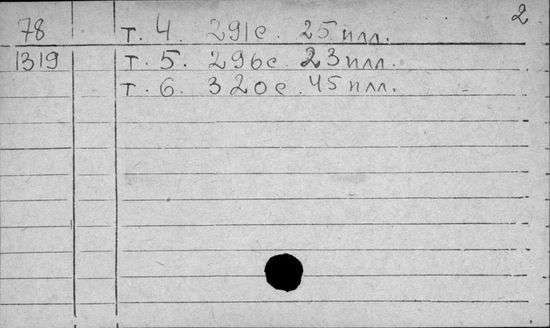 2
78 т. 4. 291с. 25 илл.
1319 т. 5. 296с. 23 илл.
т. 6. 320с. 45 илл.